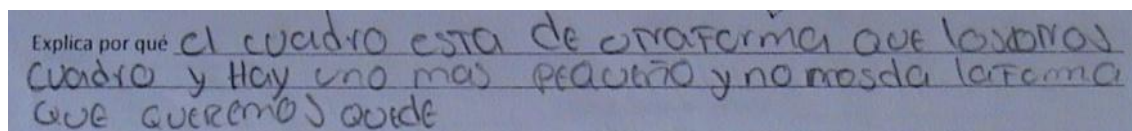 Explica por qué el cuadro esta de otra forma que los otros
cuadro y Hay uno mas pequeño y no nos da la forma
que queremos quede